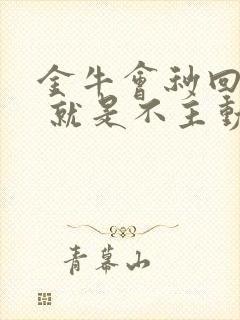 金牛會秒回
就是不主動
青幕山